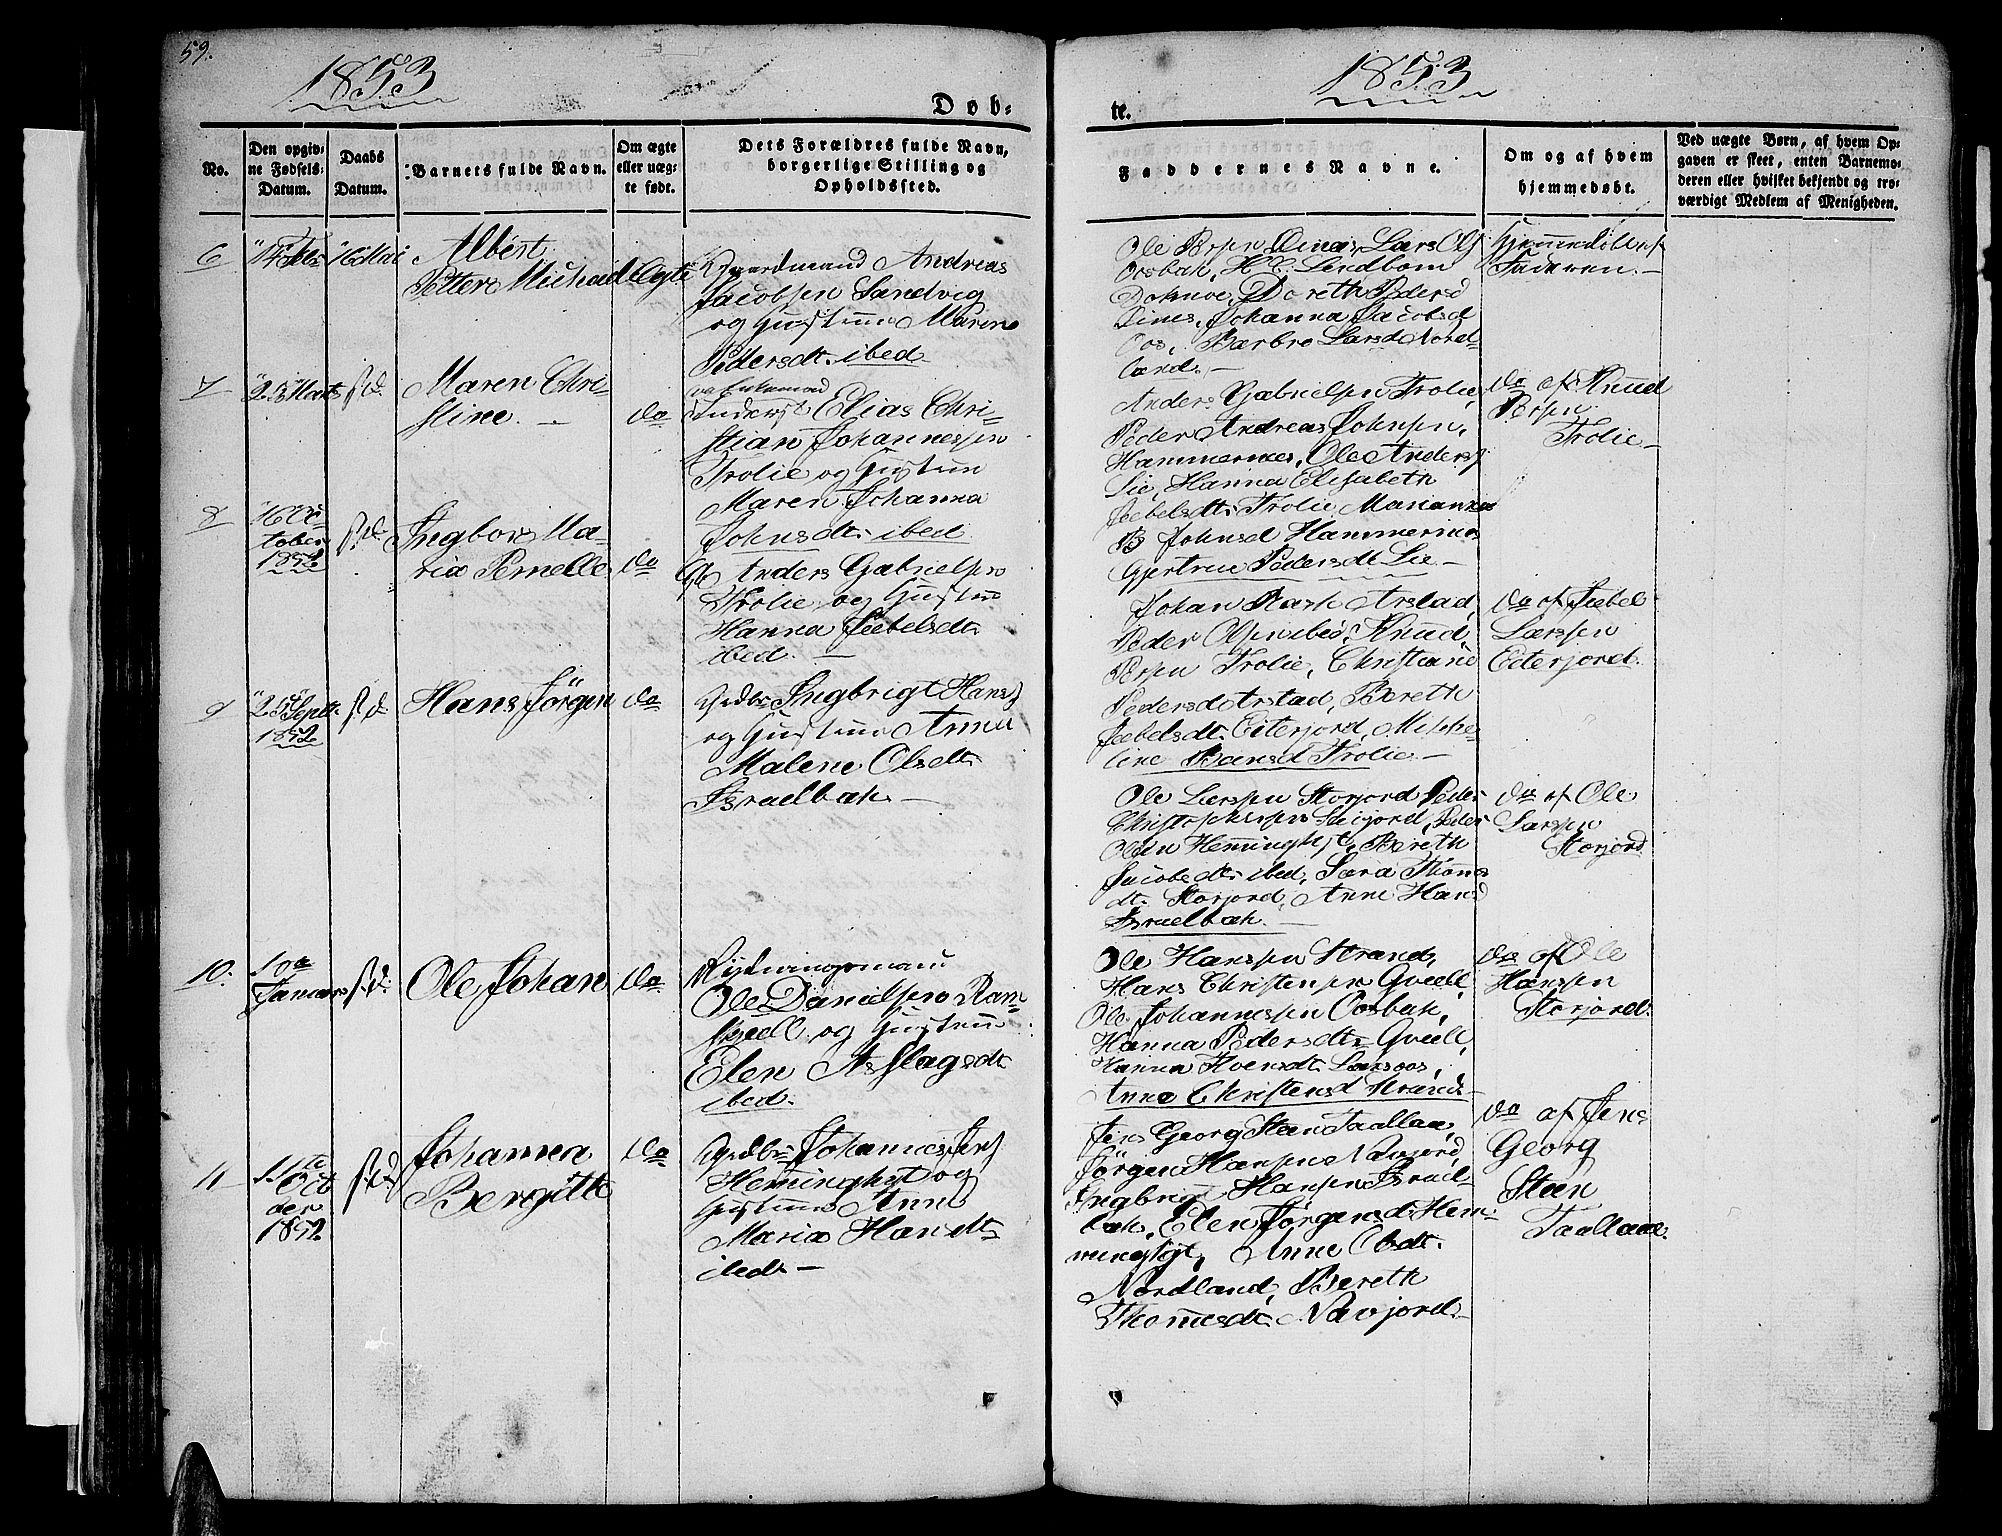 59.
1853
Døb-
No.
Den opgiv-
ne Fødsels-
Datum.
Daabs
Datum.
Barnets fulde Navn.
Om ægte
eller uæg-
te født.
Dets Forældres fulde Navn,
borgerlige Stilling og
Opholdssted.
6
16 Mai
Albert
Petter Michael
Ægte
Andreas
Jacobsen Sandvig
og Hustrue Maren
Pedersdt. ibed.
7
25 Marts
s. d.
Maren Chri-
stine.
do
Elias Chri-
stian Johannessen
Trolie og Hustrue
Maren Johanna
Johnsdt. ibed.
8
16 Oc-
tober
1852
s. d.
Ingbor Ma-
ria Pernelle
do
Anders Gabrielsen
Trolie og Hustrue
Hanna Seebelsdt.
ibed.
9
25 Septb.
1852
s. d.
Hans Jörgen
do
Ingbrigt Hans
og Hustrue Anna
Malene Olsdt.
Israelbak
10.
10de
Januar
s. d.
Ole Johan
do
Rydningsmand
Ole Danielsen Ram-
skjell og Hustrue
Elen Aslagsdt
ibed.
11
11te
Octo
ber
1852
s. d.
Johanna
Bergitte
do
Johannes Jens
Hemminghyt og
Hustrue Anne
Maria Hansdt.
ibed.
1853
te.
Faddernes Navne.
Om og af hvem
hjemmedøbt.
Ved uægte Børn, af hvem Op-
gaven er skeet, enten Barnemo-
deren eller hvilket bekjendt og tro-
værdigt Medlem af Menigheden.
Ole Lars Ols
Oosbak, H. C. Lindbom
Doreth Peders
Johanna Jacobsd
Oos, Barbro Larsd Nord-
land.
Hjemmedöbt af
Faderen.
Anders Gabrielsen Trolie,
Peder Andreas Johnsen,
Hammernes, Ole Anders
Lie, Hanna Elisabeth
Seebelsdt. Trolie, Marianna
B Johnsd Hammernes
Gjertrue Pedersdt Lie
do af Knud
Trolie
Johan Rask Arstad,
Peder Olsen ibed, Knud
Trolie, Christiane
Pedersd Arstad, Bereth
Seebelsdt. Eiterjord, Mekke-
line Trolie
do af Seebel
Larssen
Eiterjord.
Ole Larssen Storjord, Peder
Christophersen Leijord, Peder
Olsen Hemminghyt, Bereth
Jacobsdt. ibed, Sara Thoms
dt. Storjord, Anne Hansd
Israelbak.
do af Ole
Larssen
Storjord
Ole Hanssen Strand,
Hans Christensen Qveell,
Ole Johannessen Oosbak,
Hanna Pedersdt. Qveell,
Hanna Larsoos,
Anne Christensd Strand
do af Ole
Hanssen
Storjord.
Jens Georg Steen Taallaa,
Jörgen Hansen Navjord,
Ingbrigt Hansen Israel-
bak, Elen Jörgensd Hem-
minghyt, Anne Olsdt.
Nordland, Bereth
Thomesdt. Navjord.
do af Jens
Georg
Steen
Taallaae.